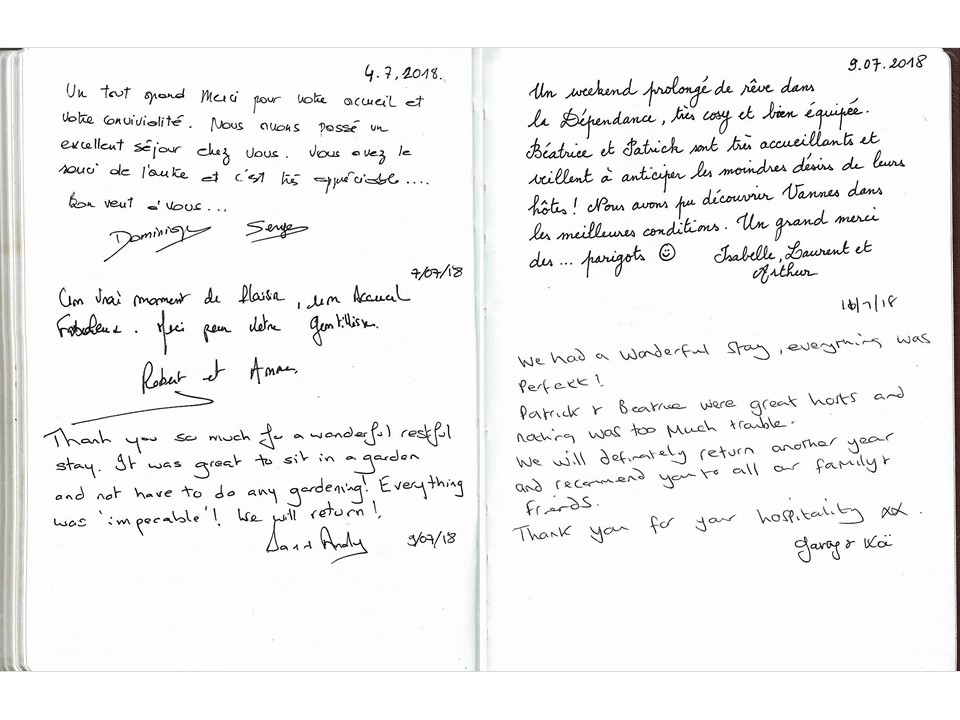 4.7.2018.
Un tout grand Merci pour votre accueil et
votre convivialité. Nous avons passé un
excellent séjour chez vous. Vous avez le
souci de l'autre et c'est très appréciable....
Bon vent à vous...
Dominique Serge
7/07/18
Un vrai moment de Plaisir, un Accueil
Merci pour votre Gentillesse.
Robert et
Thank you so much for a wonderful restful
stay. It was great to sit in a garden
and not have to do any gardening! Everything
was 'impecable'! We will return!
Andy 9/07/18
9.07.2018
Un weekend prolongé de rêve dans
la Dépendance, très cosy et bien équipée.
Béatrice et Patrick sont très accueillants et
veillent à anticiper les moindres désirs de leurs
hôtes! Nous avons pu découvrir Vannes dans
les meilleures conditions. Un grand merci
des... parigots ☺ Isabelle, Laurent et
Arthur
We had a wonderful stay, everything was
Perfekt!
Patrick & Beatrice were great hosts and
nothing was too much trouble.
We will definately return another year
and recommend you to all our family &
friends.
Thank you for your hospitality xx.